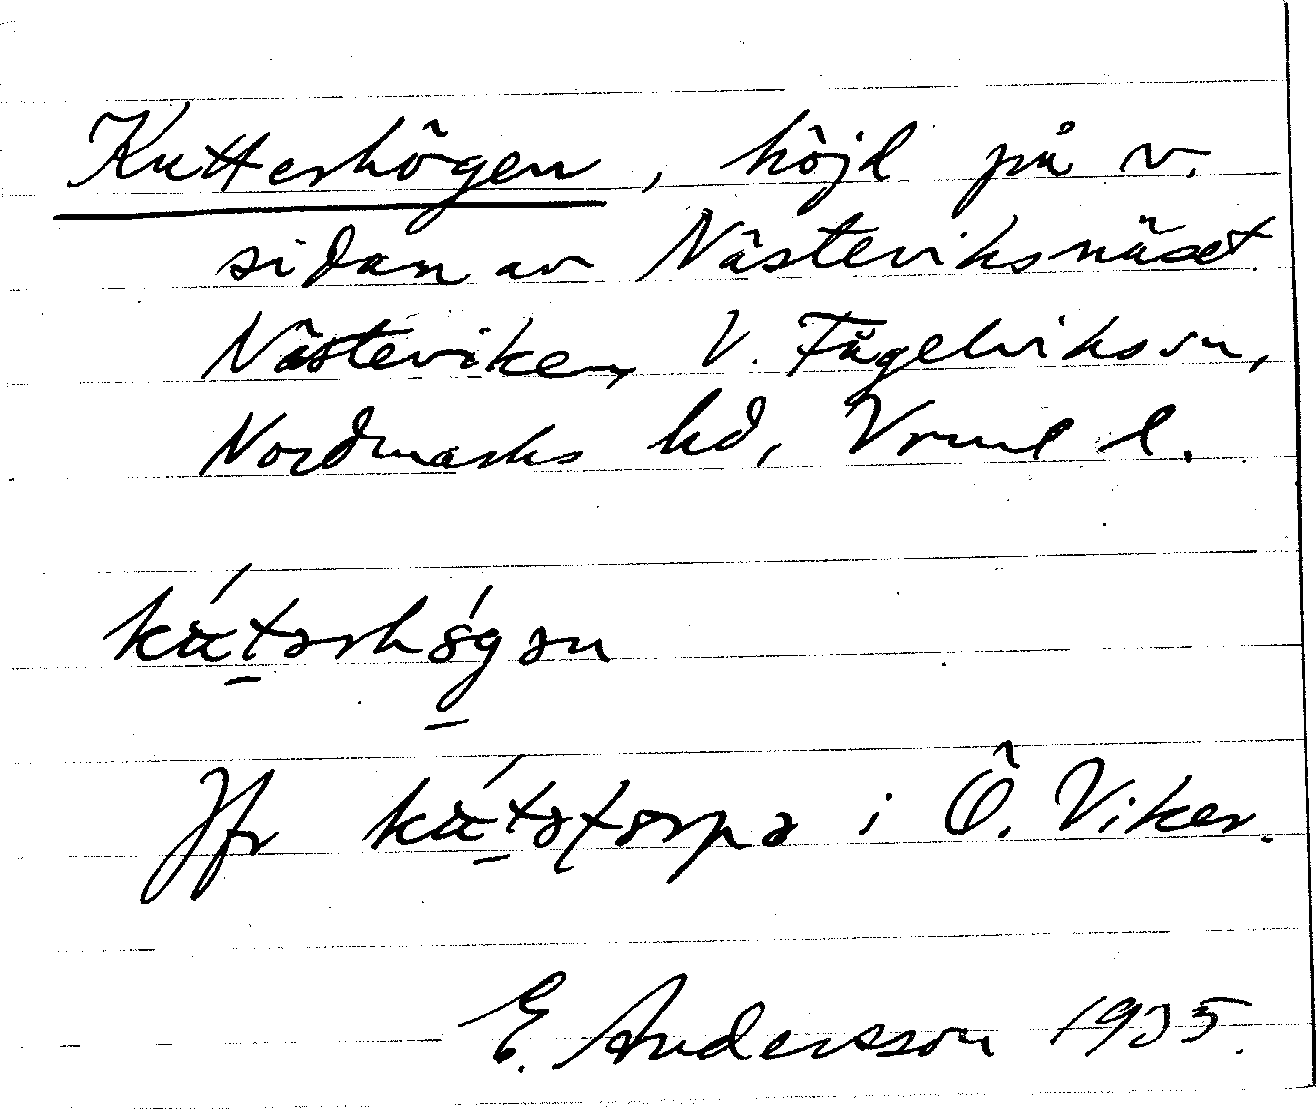 Kutterhögen, höjd på v.
sidan av Nästeviksnäset
Nästeviken, V. Fågelviks sn,
Nordmarks hd, Vrml l.
kútərhö́gən
Jfr kútətərpə i Ö. Viker.
E. Andersson 1935.